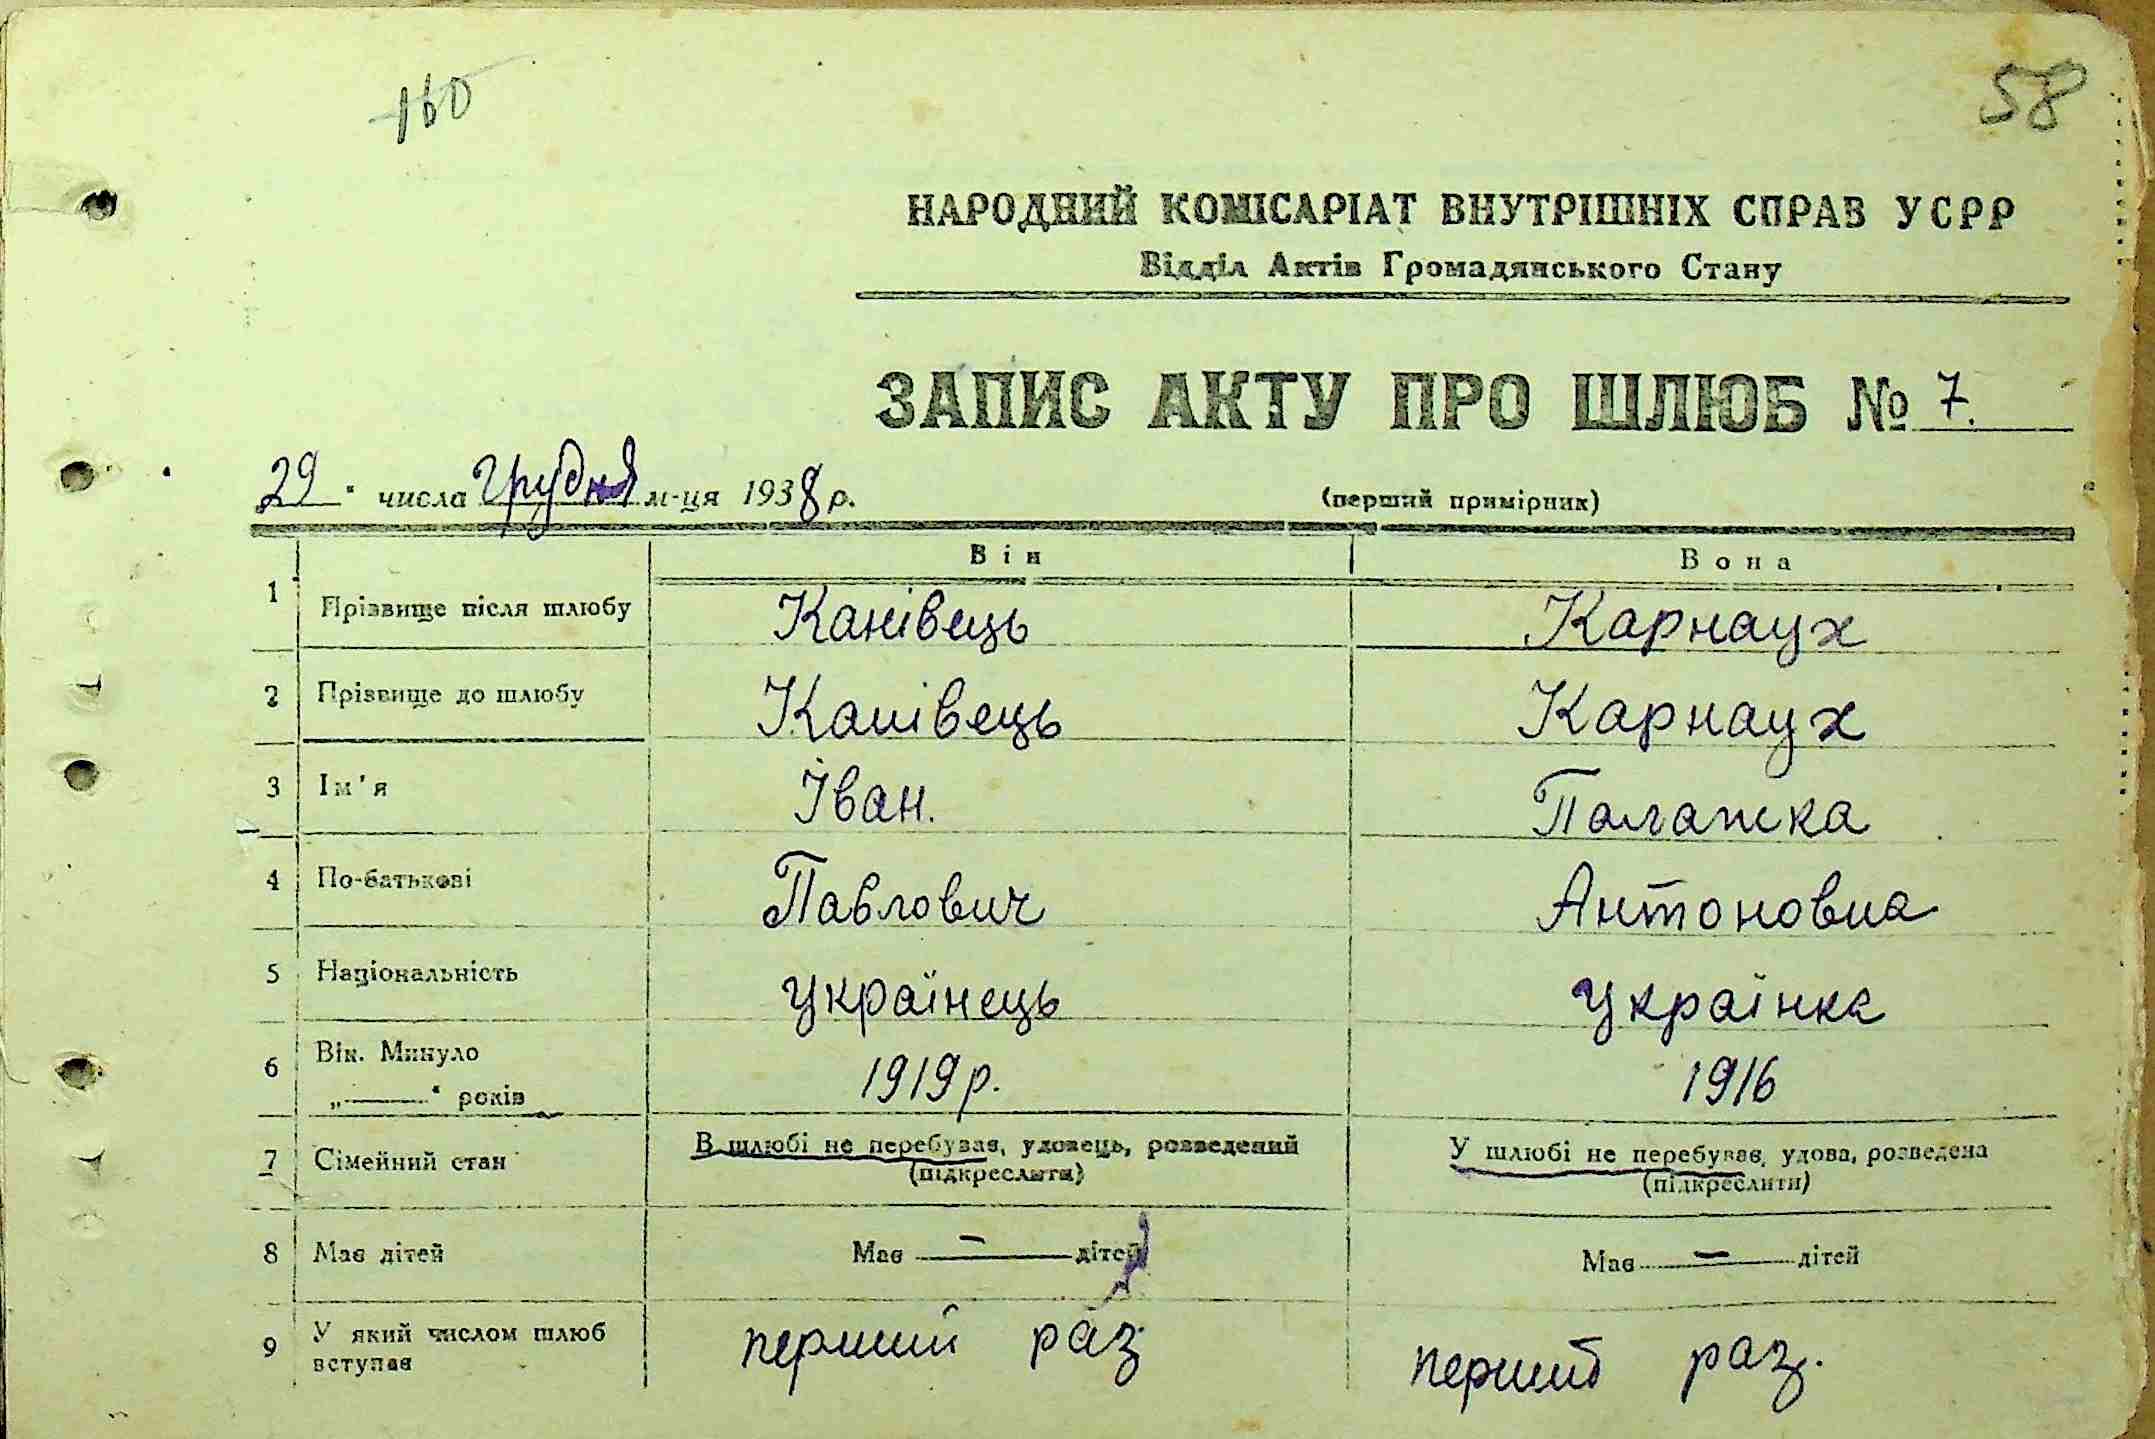 160
58
НАРОДНИЙ КОМІСАРІАТ ВНУТРІШНІХ СПРАВ УСРР
Відділ Актів Громадянського Стану
ЗАПИС АКТУ ПРО ШЛЮБ № 7.
29 " числа грудня м-ця 1938 р. (перший примірник)
Він Вона
1 Прізвище після шлюбу Канівець Карнаух
2 Прізвище до шлюбу Канівець Карнаух
3 Ім'я Іван. Палажка
4 По-батькові Павлович Антоновна
5 Національність українець українка
6 Вік. Минуло 1919 р. 1916
„ " років
7 Сімейний стан В шлюбі не перебував, удовець, розведений У шлюбі не перебував, удова, розведена
(підкреслити) (підкреслити)
8 Має дітей Має — дітей Має — дітей
9 У який числом шлюб вступав перший раз. перший раз.